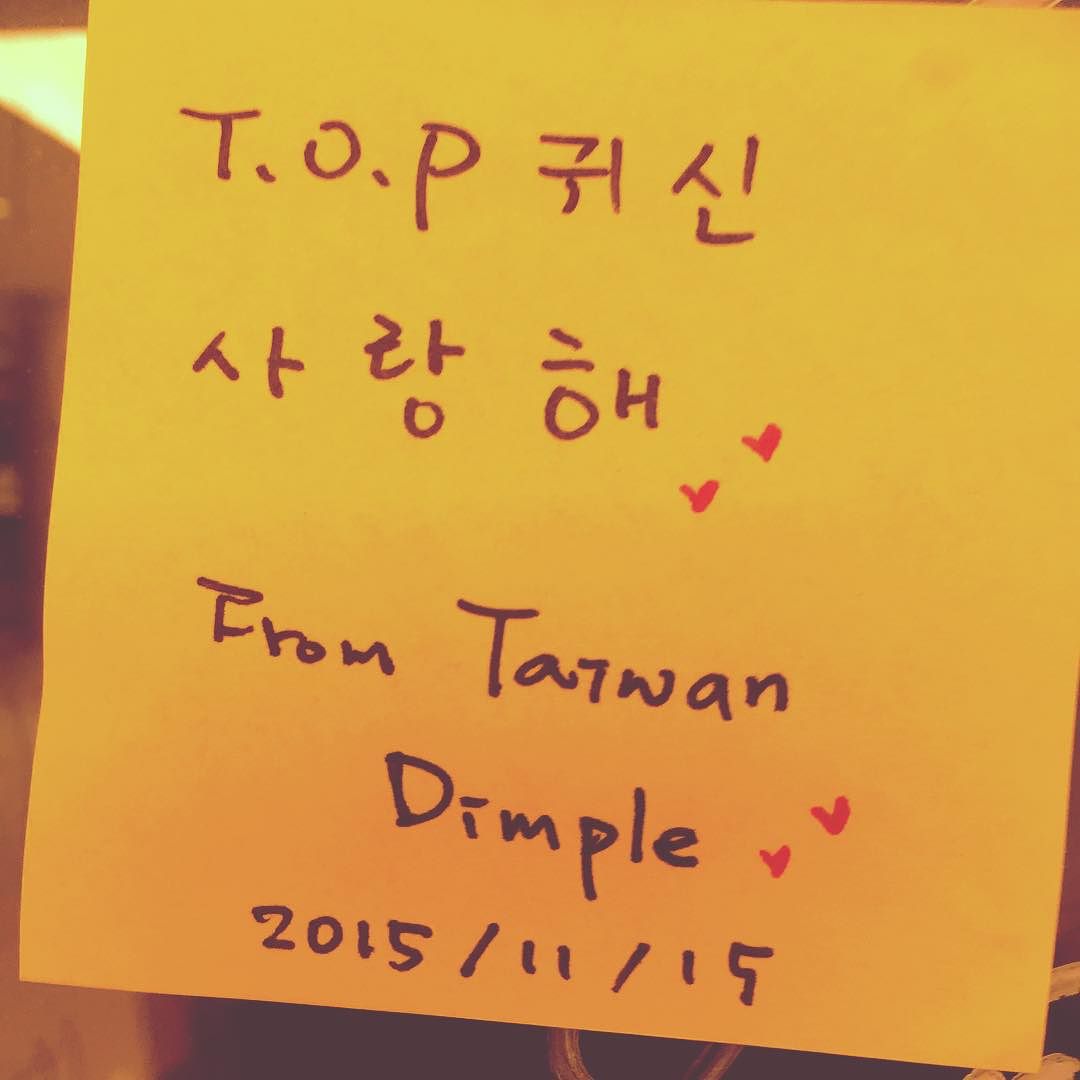 T.O.P 귀신
사랑해
From Taiwan
Dimple
2015/11/15